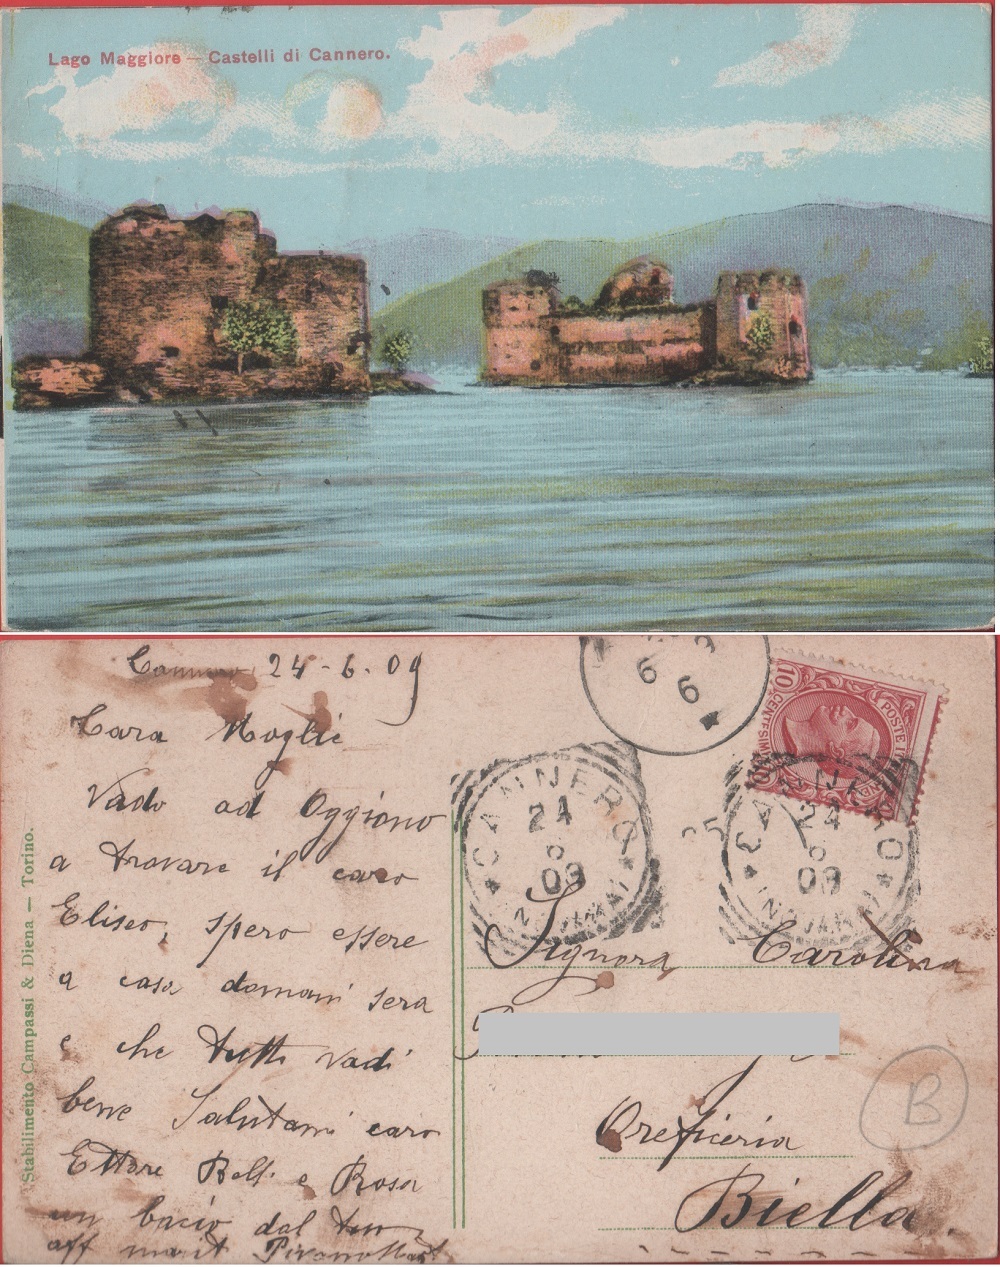 Lago Maggiore — Castelli di Cannero.
Cannero 24-6.09
Cara Moglie
Vado ad Oggiono
a trovare il caro
Eliseo, spero essere
a casa domani sera
e che tutto vadi
bene Salutami caro
Ettore Bell. e Rosa
un bacio dal tuo
aff marit
Stabilimento Campassi & Diena — Torino.
6 6
POSTE
10 CENTESIMI
CANNERO
24
6
09
25
CANNERO
24
6
09
Signora Carolina
Oreficeria
Biella.
B